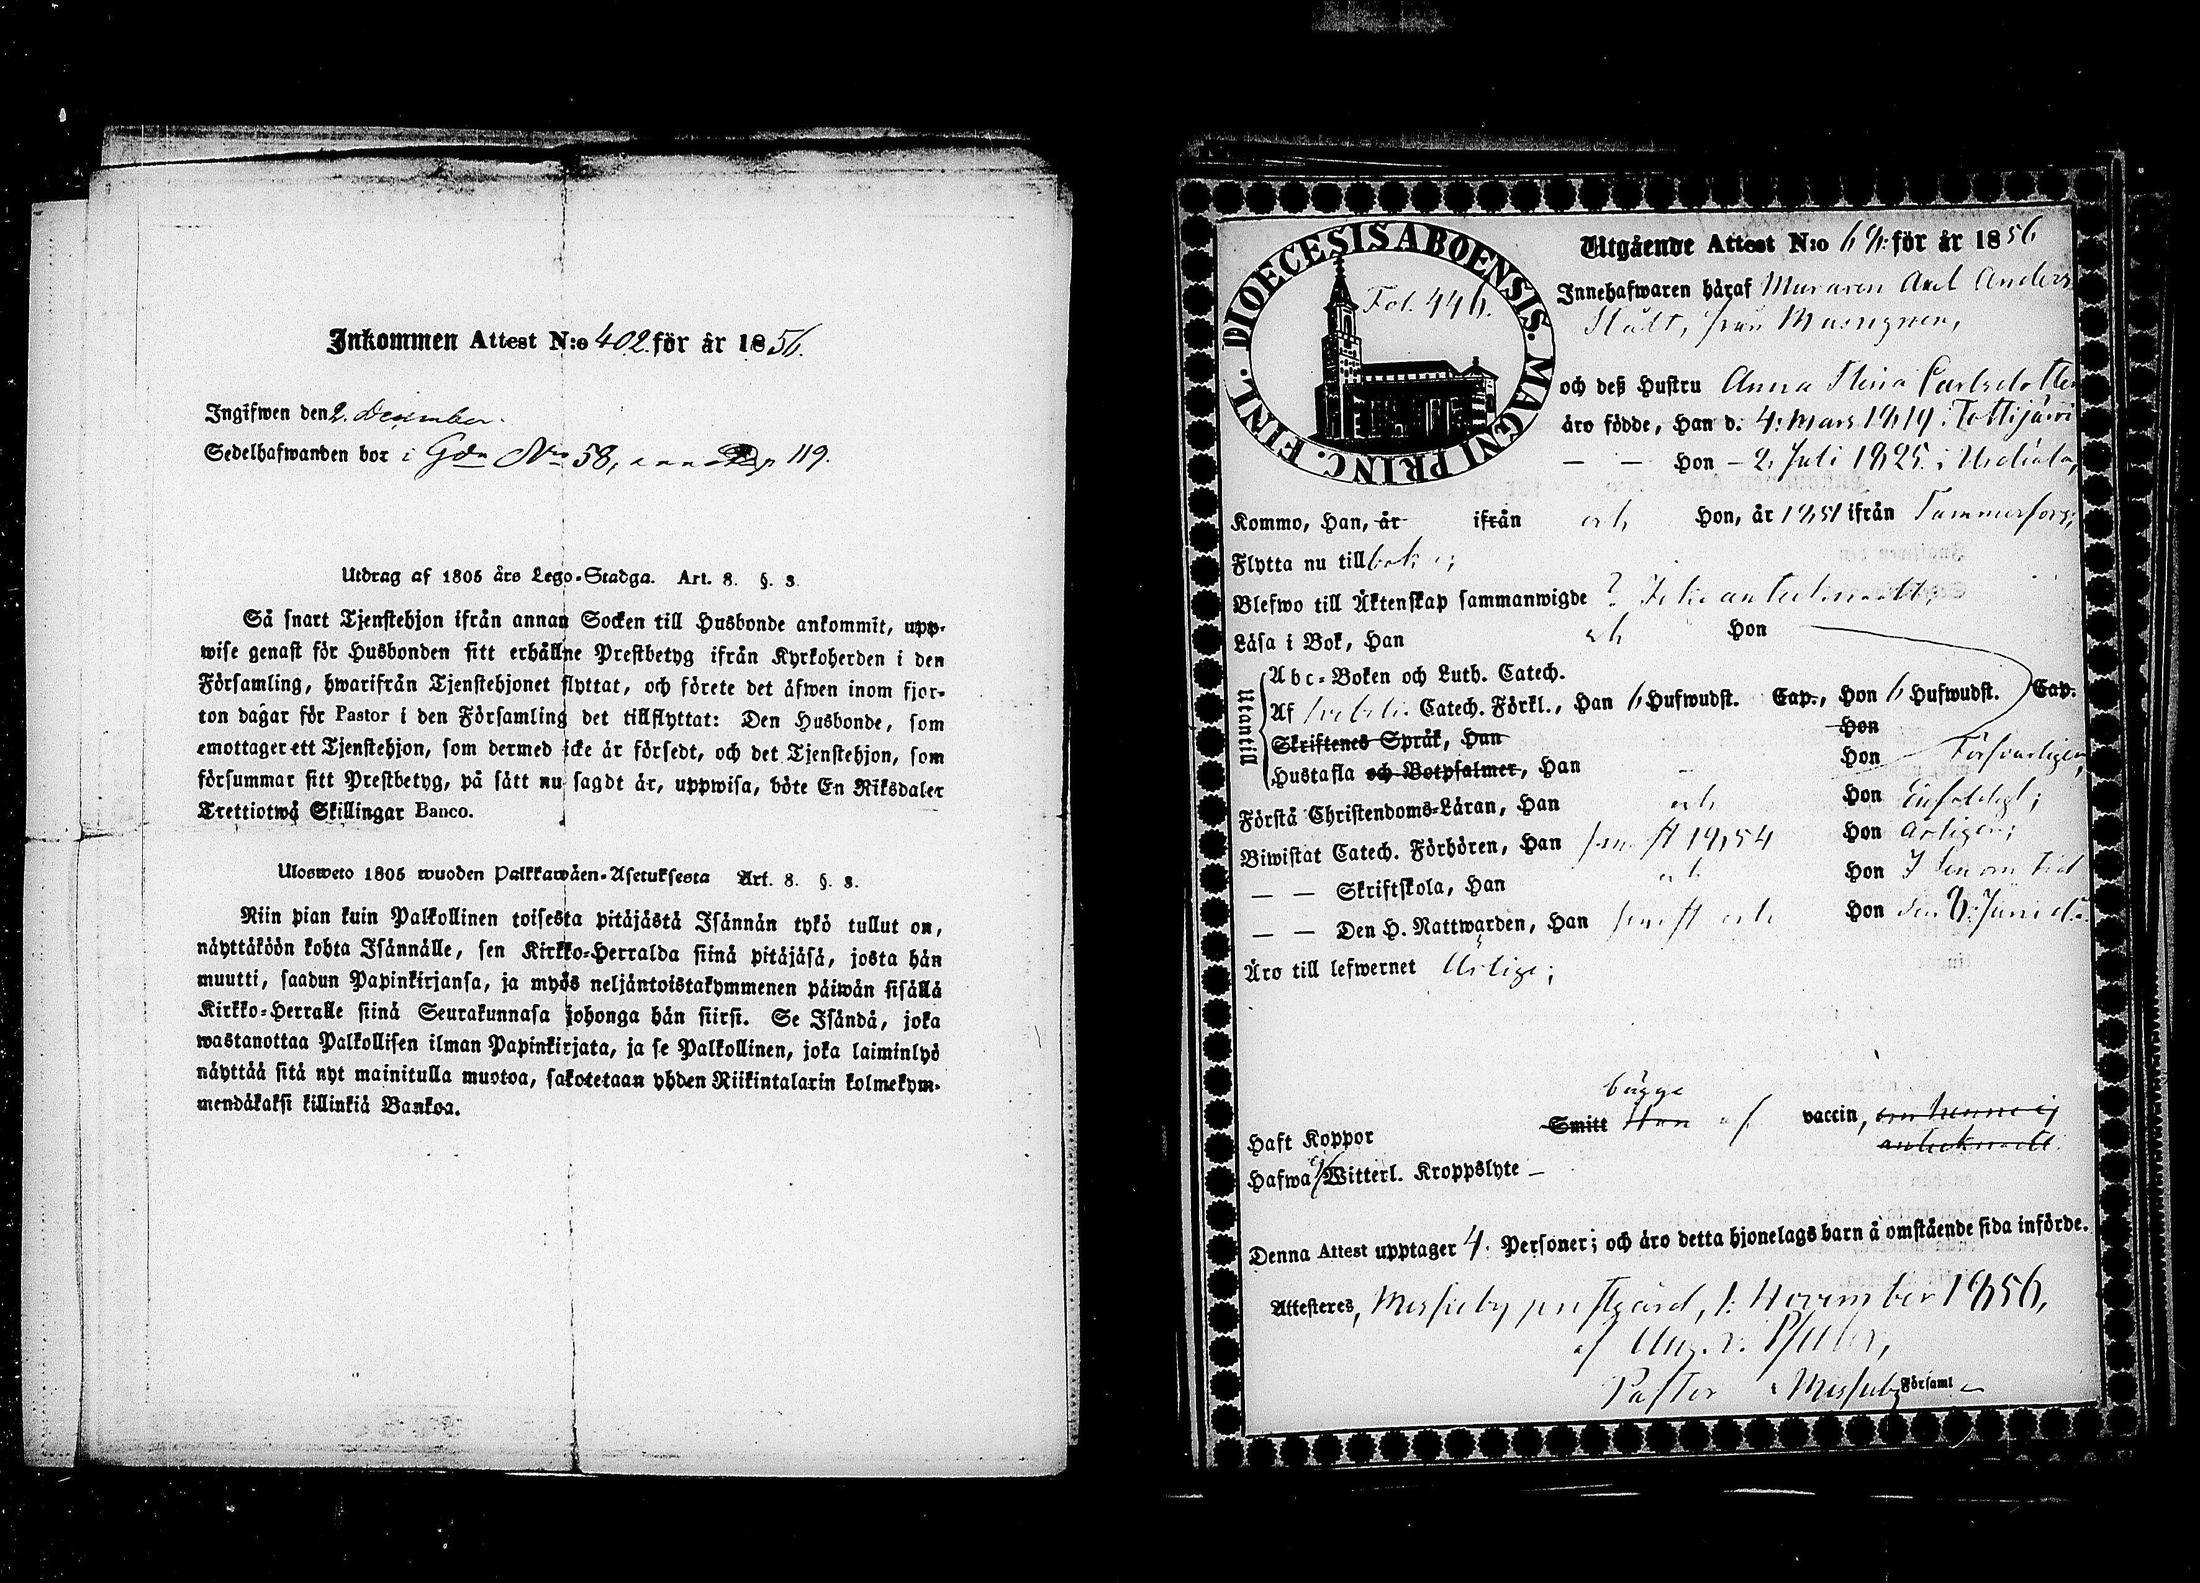 Inkommen Attest N:o 402 för år 1856.
Ingifwen den 2. December.
Sedelhafwanden bor i Gdn No 58, 119.
Utdrag af 1805 års Lego-Stadga. Art. 8. §. 3.
Så snart Tjenstehjon ifrån annan Socken till Husbonde ankommit, upp-
wise genast för Husbonden sitt erhållne Prestbetyg ifrån Kyrkoherden i den
Församling, hwarifrån Tjenstehjonet flyttat, och förete det äfwen inom fjor-
ton dagar för Pastor i den Församling det tillflyttat: Den Husbonde, som
emottager ett Tjenstehjon, som dermed icke är försedt, och det Tjenstehjon, som
försummar sitt Prestbetyg, på sätt nu sagdt är, uppwisa, böte En Riksdaler
Trettiotwå Skillingar Banco.
Ulosweto 1805 wuoden Palkkawäen-Asetuksesta Art. 8. §. 3.
Niin pian kuin Palkollinen toisesta pitäjästä Isännän tykö tullut on,
näyttäköön kohta Isännälle, sen Kirkko-Herralda siinä pitäjäsä, josta hän
muutti, saadun Papinkirjansa, ja myös neljäntoistakymmenen päiwän sisällä
Kirkko-Herralle siinä Seurakunnasa johonga hän siirsi. Se Isändä, joka
wastanottaa Palkollisen ilman Papinkirjata, ja se Palkollinen, joka laiminlyö
näyttää sitä nyt mainitulla muotoa, sakotetaan yhden Riikintalarin kolmekym-
mendäkaksi killinkiä Bankoa.
DIOECESIS ABOENSIS. MAGNI PRINC. FINL.
Fol. 446.
Utgående Attest N:o för år 1856
Innehafwaren häraf Muraren Axel Anders
från
och deß Hustru Anna Stina Carlsdotter
äro födde, Han d. 4: Mars 1819. i Tottijärvi
— — Hon — 2. Juli 1825. i Urdiala,
Kommo, Han, år ifrån och Hon, år 1851 ifrån Tammerfors;
Flytta nu till
Blefwo till Äktenskap sammanwigde ? Icke antecknadt,
Läsa i Bok, Han och Hon
Utantill
Abc-Boken och Luth. Catech.
Af Catech. Förkl., Han 6 Hufwudst. Cap., Hon 6 Hufwudst. Cap.
Skriftenes Språk, Han Hon
Hustafla och Botpsalmer, Han — Hon Försvarligen,
Förstå Christendoms-Läran, Han och Hon Enfaldigt;
Biwistat Catech. Förhören, Han senast 1854 Hon Årligen;
— — Skriftskola, Han och Hon I sin om tid
— — Den H. Nattwarden, Han senast och Hon den 8. Juni d.å.
Äro till lefwernet Ärlige;
begge
Haft Koppor Smitt Han af vaccin, om henne ej
antecknadt.
Hafwa ej Witterl. Kroppslyte —
Denna Attest upptager 4. Personer; och äro detta hjonelags barn å omstående sida införde.
Attesteres, Messuby prestgård, 1. November 1856,
af Aug. v. Pfaler,
Pastor i Messuby Församl